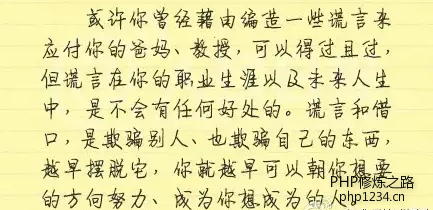 或许你曾经藉由编造一些谎言来
应付你的爸妈、教授，可以得过且过，
但谎言在你的职业生涯以及未来人生
中，是不会有任何好处的。谎言和借
口，是欺骗别人、也欺骗自己的东西，
越早摆脱它，你就越早可以朝你想要
的方向努力、成为你想成为的人
PHP修炼之路
php1234.cn